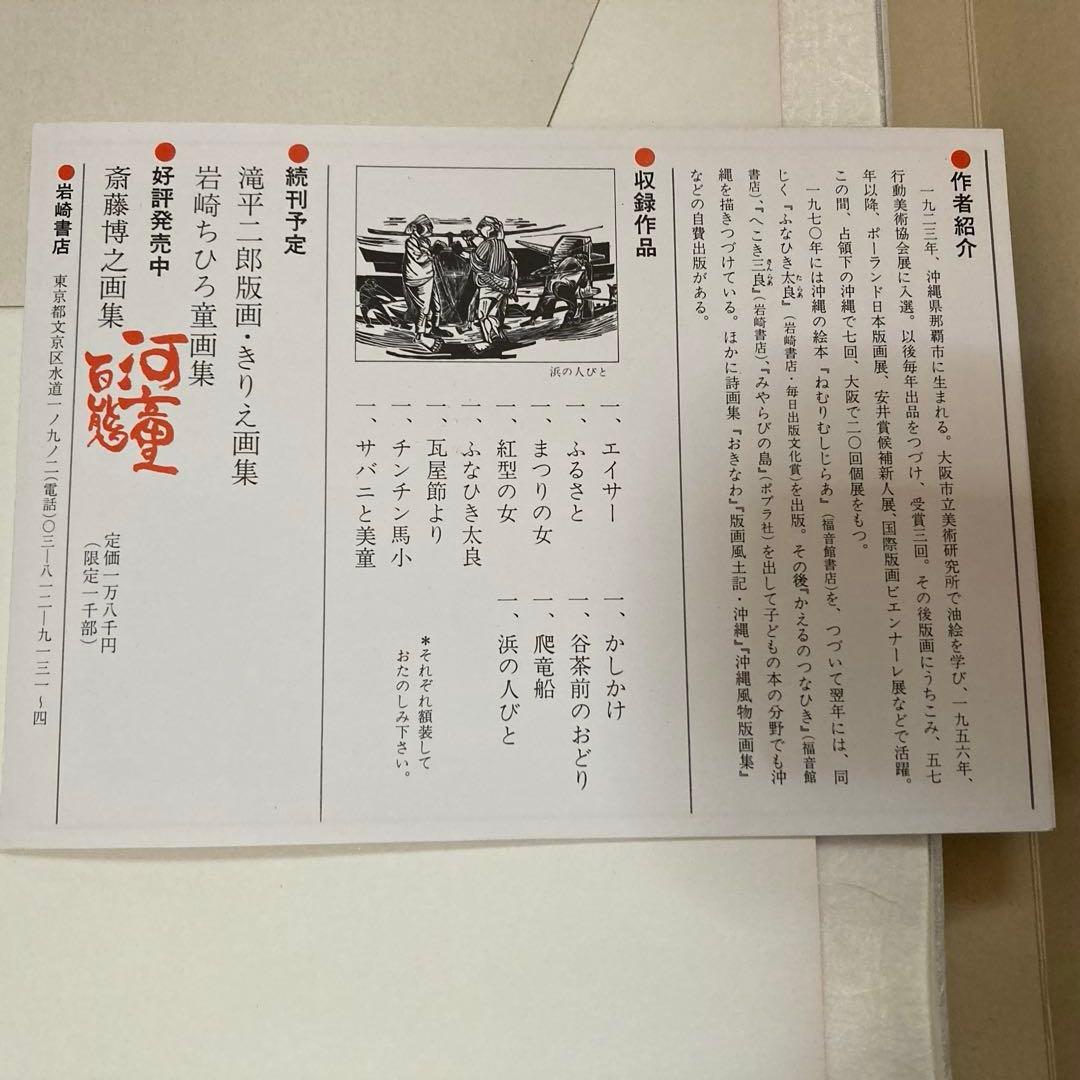 ●作者紹介
一九二三年、沖縄県那覇市に生まれる。大阪市立美術研究所で油絵を学び、一九五六年、
行動美術協会展に入選。以後毎年出品をつづけ、受賞三回。その後版画にうちこみ、五七
年以降、ポーランド日本版画展、安井賞候補新人展、国際版画ビエンナーレ展などで活躍。
この間、占領下の沖縄で七回、大阪で二〇回個展をもつ。
一九七〇年には沖縄の絵本『ねむりむしじらあ』(福音館書店)を、つづいて翌年には、同
じく『ふなひき太良』(岩崎書店・毎日出版文化賞)を出版。その後『かえるのつなひき』(福音館
たらあ
書店)、『へこき三良』(岩崎書店)、『みやらびの島』(ポプラ社)を出して子どもの本の分野でも沖
さんらあ
縄を描きつづけている。ほかに詩画集『おきなわ』『版画風土記・沖縄』『沖縄風物版画集』
などの自費出版がある。
●収録作品
浜の人びと
一、エイサー
一、ふるさと
一、まつりの女
一、紅型の女
一、ふなひき太良
一、瓦屋節より
一、チンチン馬小
一、サバニと美童
一、かしかけ
一、谷茶前のおどり
一、爬竜船
一、浜の人びと
*それぞれ額装して
おたのしみ下さい。
●続刊予定
滝平二郎版画・きりえ画集
岩崎ちひろ童画集
●好評発売中
斎藤博之画集
河童
百態
定価一万八千円
(限定一千部)
●岩崎書店 東京都文京区水道一ノ九ノ二(電話)〇三―八一二―九一三一~四